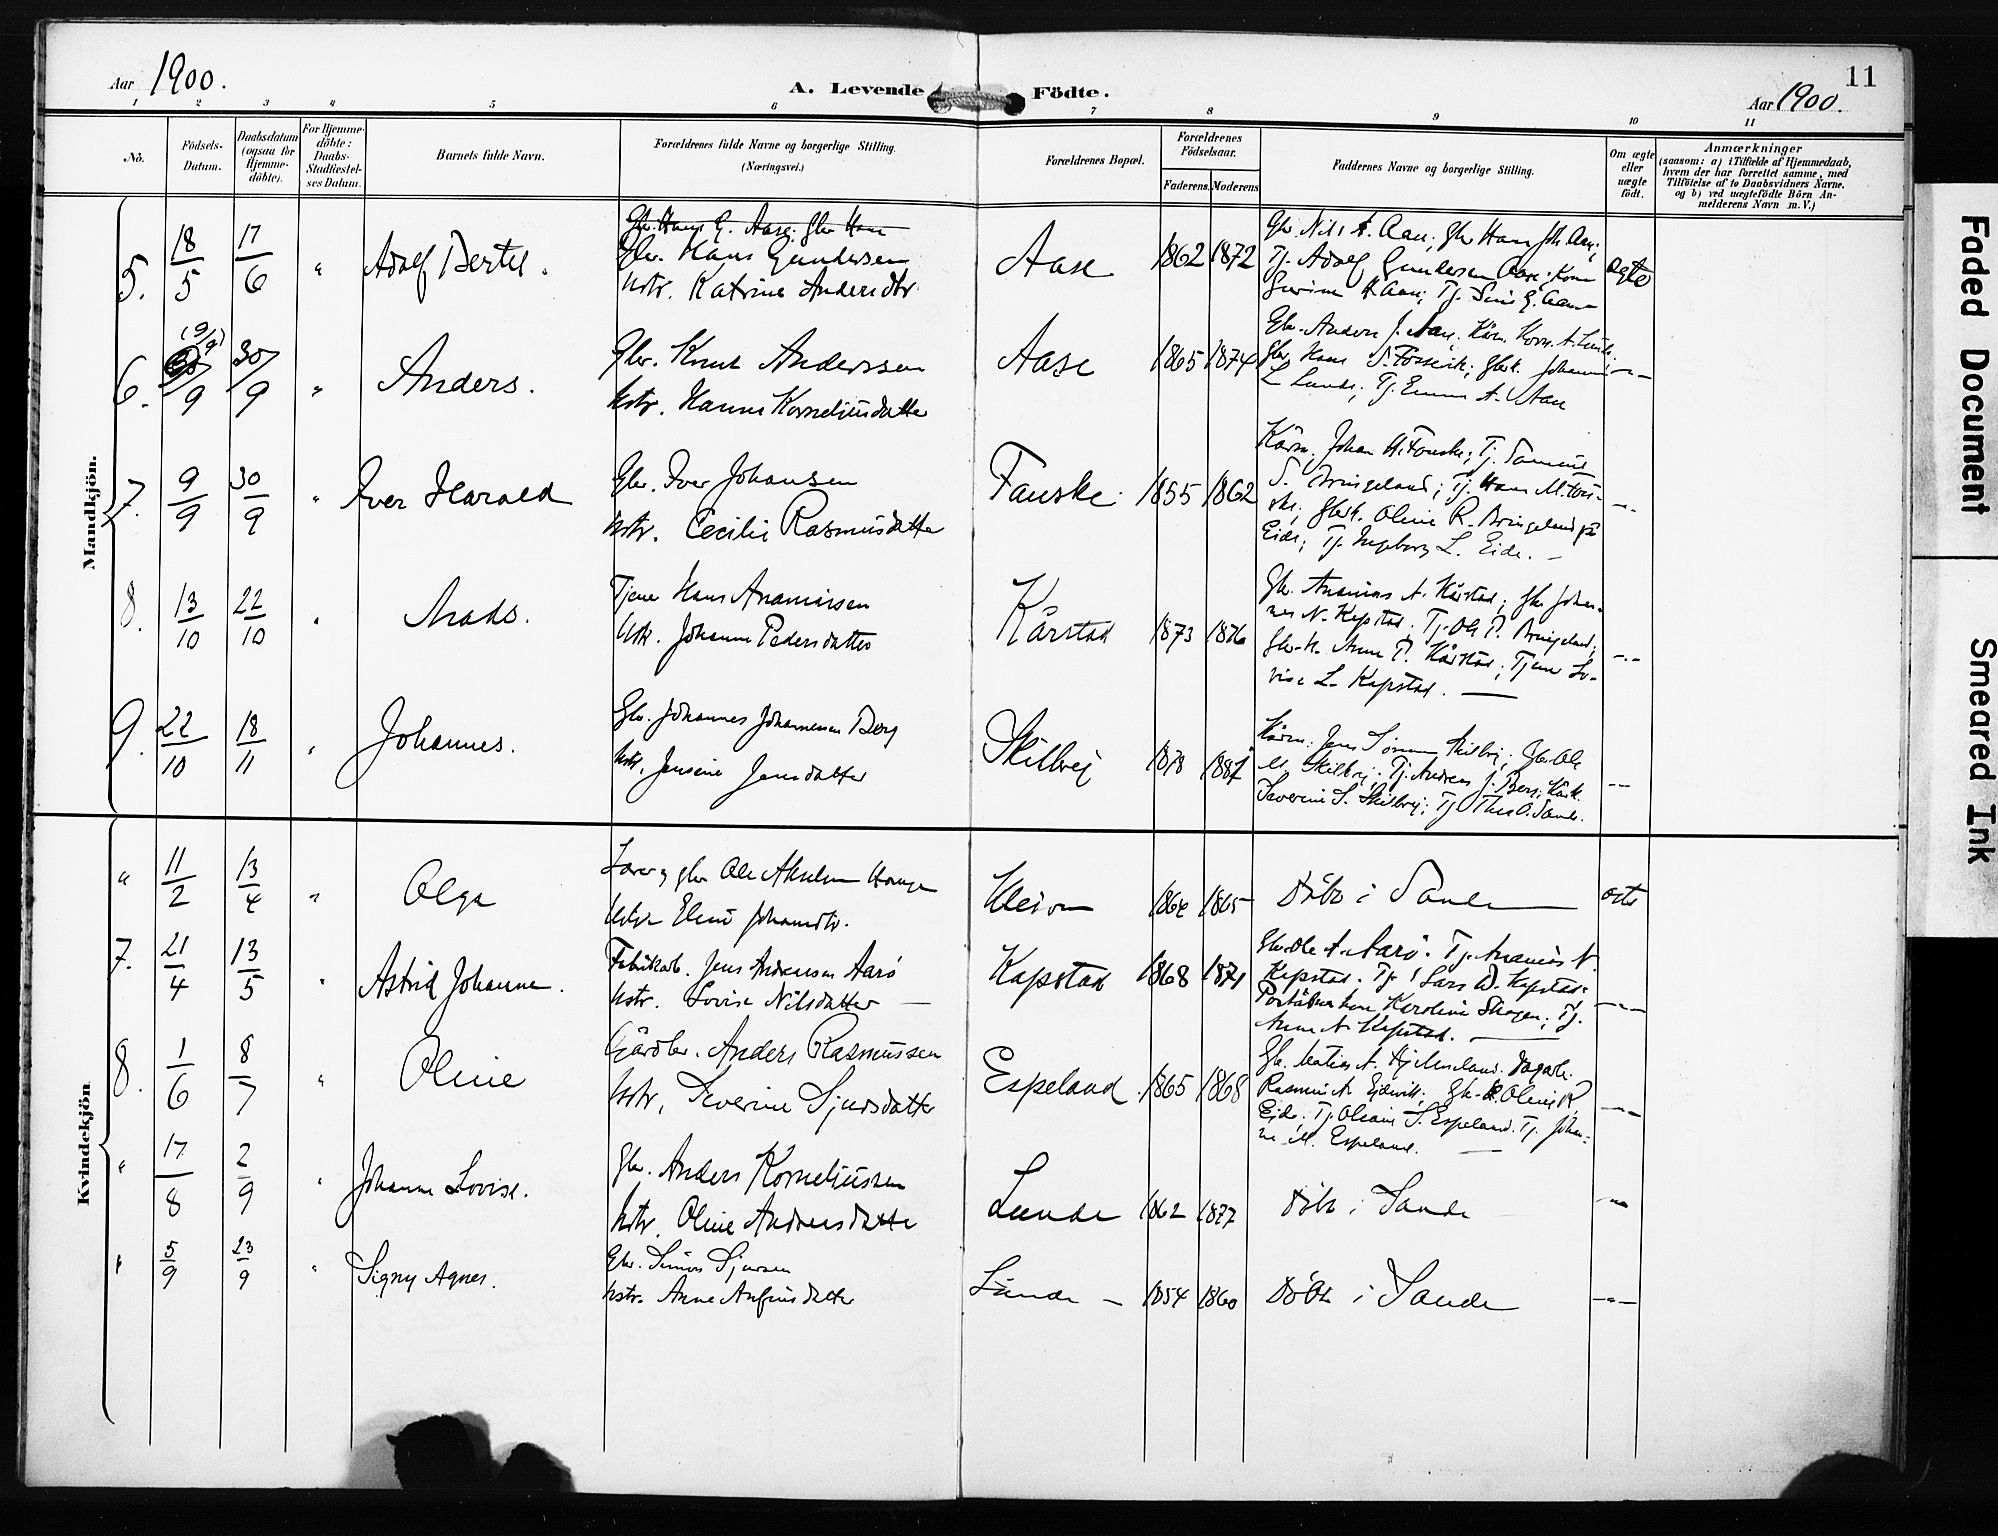 Aar 1900.
A. Levende Födte.
11
Aar 1900.
1 2 3 4 5 6 7 8 9 10 11
No.
Födsels-Datum.
Daabsdatum (ogsaa for Hjemme-döbte).
For Hjemme-döbte: Daabs-Stadfæstel-ses Datum.
Barnets fulde Navn.
Forældrenes fulde Navne og borgerlige Stilling.
(Næringsvei.)
Forældrenes Bopæl.
Forældrenes Födselsaar.
Faderens. Moderens
Faddernes Navne og borgerlige Stilling.
Om ægte eller uægte födt.
Anmærkninger
(saasom: a) i Tilfælde af Hjemmedaab,
hvem der har forrettet samme, med
Tilföielse af to Daabsvidners Navne,
og b) ved uægtefödte Börn An-
melderens Navn m. V.)
Mandkjön.
5. 18/5 17/6 " Adolf Bertel.
Gbr. Hans G. Aase; Gbr. Hans
Gbr. Hans Gundersen
Hstr. Katrine Andersdtr.
Aase 1862 1872
Gbr. Nils A. Aase; Gbr Hans Joh. Aase;
Tj. Adolf Gundersen Aase; Kone
ægte
6. (9/9) 9 30/9 " Anders.
Gbr. Knut Anderssen
Hstr. Hanne Korneliusdatter
Aase 1865 1874
Gbr. Anders J. Aase, Kårm. Korn. A. Lunde;
Gbr. Hans S. Fossevik; Gbrk. Johanne
L. Lunde; Tj. Emma A. Aase
-"-
7. 9/9 30/9 " Iver Harald
Gbr. Iver Johansen
Hstr. Cecilie Rasmusdatter
Fauske. 1855 1862
Kårm. Johan H. Fauske; Tj. Samuel
S. Bringeland; Tj. Hans M. Fau-
ske; Gbrk. Oline R. Bringeland på
Eide; Tj. Ingeborg L. Eide. –
-"-
8. 13/10 22/10 " Mads.
Tjener Hans Ananiassen
Hstr. Johanne Pedersdatter
Kårstad 1873 1876
Gbr. Ananias A. Kårstad; Gbr Johan-
nes N. Kapstad. Tj. Ole P. Bringeland;
Gbr.k. Anne P. Kårstad; Tjener Lo-
vise L. Kapstad.
-"-
9. 22/10 18/11 " Johannes.
Gbr. Johannes Johannesen Berg
Hstr. Jensine Jensdatter
Skilbrej
Kårm. Jens Simon Skilbrej; Gbr Ole
M. Skilbrej; Tj. Andreas J. Berg; Kårk.
Severine S. Skilbrej; Tj. Thea O. Sande.
-"-
Kvindekjön
" 11/2 13/4 " Olga
Lærer og gbr Ole Akselsen Hauge
Hstr Eline Johansdtr.
1864 1865 Döbt i Sande
7. 21/4 13/5 " Astrid Johanne.
Fabrikarb. Jens Andreasen Aarö
Hstr. Lovise Nilsdatter –
Kapstad 1868 1871
Gbr. Ole A. Aarö. Tj. Ananias N.
Kapstad. Tj. Lars D. Kapstad.
Karoline Skogen; Tj.
Anne N. Kapstad.
-"-
8. 1/6 8/7 " Oline
Gårdbr. Anders Rasmussen
Hstr. Severine Sjursdatter
Espeland 1865 1868
Gbr. Matias A. Hjelmeland.
Rasmus A. Eidevik; Gbr.k. Oline R.
Eide; Tj. S. Espeland. Tj. Johan-
ne M. Espeland.
-"-
" 17/8 2/9 " Johanne Lovise.
Gbr. Anders Korneliussen
Hstr. Oline Andersdatter
Lunde 1862 1877 Döbt i Sande -"-
" 5/9 23/9 " Signy Agnes.
Gbr. Simon Sjursen
Hstr. Anne Anfinsdatter
Lunde – 1854 1860 Döbt i Sande -"-
Faded Document
Smeared Ink